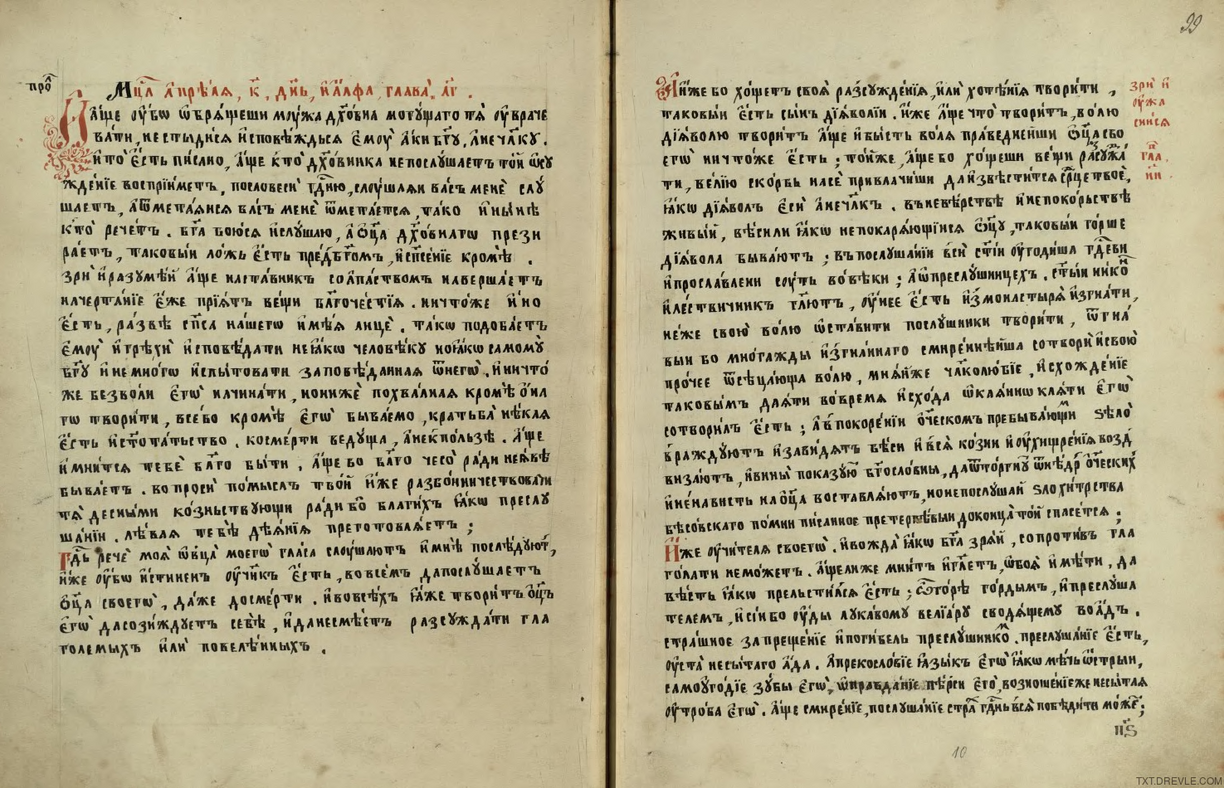 про҃л
Мц҃а а҆прѣ́лѧ, к҃, дн҃ь, и҆ а҆́лфа глава̀, л҃г.
А҆́ще оу҆́бѡ ѡ҆брѧ́щеши моу́жа дх҃о́вна могу́щаго тѧ̀ оу҆враче
ва́ти, не стыди́сѧ и҆сповѣ́ждьсѧ є҆моу̀ а҆́ки бг҃ꙋ, а҆ не чл҃кꙋ.
и҆ то̀ є҆́сть пи́сано, а҆́ще кто̀ дх҃о́вника не послꙋ́шаетъ то́й ѡ҆сꙋ
жде́нїе воспрїи́метъ, по словесѝ гд҃ню, слоу́шаѧи ва́съ менѐ слꙋ́
шаетъ, а҆ ѿмета́ѧисѧ ва́съ менѐ ѿмета́етсѧ, та́ко и҆ ны́нѣ
кто̀ рече́тъ. бг҃а бою́сѧ и҆ слꙋ́шаю, а҆ ѻ҆ц҃а̀ дх҃о́внагѡ прези
ра́етъ, таковы́й ло́жь є҆́сть пред̾ бг҃омъ, и҆ спⷭ҇е́нїе кромѣ̀.
зрѝ и҆ разꙋмѣ́й а҆́ще наста́вникъ со лпа́ствомъ наверша́етъ
начерта́нїе є҆́же прїѧ́тъ ве́щи бл҃гоче́стїѧ. ничто́же и҆́но
є҆́сть, ра́звѣ спⷭ҇а на́шегѡ и҆мѣ́ѧ лицѐ. та́кѡ подоба́етъ
є҆моу̀ и҆ грѣхѝ и҆сповѣ́дати не ꙗ҆́кѡ человѣ́кꙋ но ꙗ҆́кѡ самомꙋ̀
бг҃ꙋ и҆ не мно́гѡ и҆спы́товати заповѣ́данная ѿ негѡ̀. и҆ ничто́
же без̾ во́ли є҆гѡ̀ начина́ти, но нижѐ похва́лная кромѣ̀ ѻ҆́на
гѡ твори́ти, все́ бо кромѣ̀ є҆гѡ̀ быва́емо, кра́тьба нѣ́кая
є҆́сть и҆ ст҃ота́тьство. ко сме́рти ведꙋ́ща, а҆ не к̾ по́льзѣ. а҆́ще
и҆ мни́тсѧ тебѣ̀ бл҃го бы́ти. а҆́ще бо бл҃го чесо̀ ра́ди не ꙗ҆́вѣ
быва́етъ. вопросѝ по́мыслъ тво́й и҆́же разбо́йничествовати
тѧ̀ десны́ми ко́зньствꙋющи ра́ди бо благи́хъ ꙗ҆́кѡ преслꙋ́
ша́нїи. лѣ́вая тебѣ̀ дѣѧ́нїя преготовлѧ́етъ ;
Гд҃ь речѐ моѧ̀ ѻ҆́вца моегѡ̀ гла́са слоу́шаютъ и҆ мнѣ̀ послѣ́дꙋютъ,
и҆́же оу҆́бѡ и҆́стиненъ оу҆чн҃къ є҆́сть, во все́мъ да послꙋ́шаетъ
ѻ҆ц҃а̀ своегѡ̀, да́же до сме́рти. и҆ во всѣ́хъ ꙗ҆́же твори́тъ ѻ҆ц҃ъ
є҆гѡ̀ да созижде́тъ себѣ̀, и҆ да не смѣ́етъ разсꙋжда́ти гла
го́лемыхъ и҆лѝ повелѣ́нныхъ.
99
И҆́же бо хо́щетъ своѧ̀ разсꙋжде́нїѧ, и҆лѝ хотѣ́нїѧ твори́ти,
таковы́й є҆́сть сы́нъ дїѧ́волїй. и҆́же а҆́ще что̀ твори́тъ, во́лю
дїѧ́волю твори́тъ а҆́ще и҆ бы́сть во́лѧ пра́веднейши ѻ҆ц҃а̀ сво
егѡ̀ ничто́же є҆́сть ; то́йже, а҆́ще бо хо́щеши ве́щи разсꙋжда́
ти, ве́лїю ско́рбь на сѐ привлачи́ши да и҆звѣсти́тсѧ срⷣце твоѐ,
ꙗ҆́кѡ дїѧ́волъ є҆сѝ а҆ не чл҃къ. в̾ неве́рствѣ и҆ непоко́рьствѣ
живы́й, вѣ́си ли ꙗ҆́кѡ не покарѧ́ющїисѧ ѻ҆ц҃ꙋ̀, таковы́й го́рше
дїѧ́вола быва́ютъ ; в̾ послꙋша́нїи всѝ ст҃і́и оу҆годи́ша гд҃еви
и҆ просла́влени сꙋ́ть во вѣ́ки ; а҆ ѡ҆ преслꙋ́шницехъ. ст҃ы́й ни́кѡⷩ
и҆ лѣ́ствичникъ гл҃ютъ, оу҆́нее є҆́сть и҆з̾ монастырѧ̀ и҆згна́ти,
не́же свою̀ во́лю ѡ҆ста́вити послꙋ́шники твори́ти, ѿгна́
вый бо мно́гажды и҆згна́ннаго смире́ннѣйша сотворѝ и҆ свою̀
про́чее ѿсѣца́юща во́лю, мнѧ́йже чл҃колю́бїе, и҆ схожде́нїе
таковы́мъ даѧ́ти во вре́мѧ и҆схо́да ѡ҆каѧ́ннѡ клѧ́ти є҆гѡ̀
сотвори́лъ є҆́сть ; а҆ в̾ покоре́нїи ѻ҆ч҃ескомъ пребыва́ющиⷯ ѕѣло̀
вражд꙯ютъ и҆ зави́дѧтъ бѣ́си и҆ всѧ̀ ко́зни и҆ оу҆хищре́нїѧ воз̾д
виза́ютъ, и҆ вины̀ показꙋ́ютъ бг҃осло́вны, да ѿто́ргнꙋтъ ѿ нѣ́дръ ѻ҆ч҃ескихъ
и҆ не́нависть на ѻ҆ц҃а̀ воставлѧ́ютъ, но не послꙋ́шай ѕлохи́трства
бѣсо́вскаго помни пи́санное претерпѣ́вый до конца̀ то́й спасе́тсѧ ;
И҆́же оу҆чи́телѧ своегѡ̀. и҆ вожда̀ ꙗ҆́кѡ бг҃а зрѧ́й, сопроти́въ гла
го́лати не мо́жетъ. а҆́ще ли же мни́тъ и҆ гл҃етъ, ѻ҆боѧ̀ и҆мѣ́ти, да
вѣ́сть ꙗ҆́кѡ прельсти́лсѧ є҆́сть ; ѽ го́ре го́рдымъ, и҆ преслꙋша
телемъ, и҆ си́ бо оу҆́ды лꙋка́вомꙋ велїа́рꙋ сводѧ́щемꙋ во а҆́дъ.
стра́шное запреще́нїе и҆ поги́бель преслꙋ́шникѡⷨ. преслꙋша́нїе є҆́сть,
оу҆ста̀ несы́таго а҆́да. а҆ прекосло́вїе ꙗ҆зы́къ є҆гѡ̀ ꙗ҆́кѡ ме́чь ѻ҆́стрый,
самоуго́дїе зꙋ́бы є҆гѡ̀, ѡ҆правда́нїе пе́рси є҆го̀, возноше́нїе же несы́таѧ
оу҆тро́ба є҆гѡ̀. а҆́ще смире́нїе, послꙋша́нїе стра́х гд҃нь всѧ̀ побѣди́ти мо́жетъ ;
зрѝ и҆
оу҆жа
сни́сѧ
гла
п҃ѕ
10
TXT.DREVLE.COM